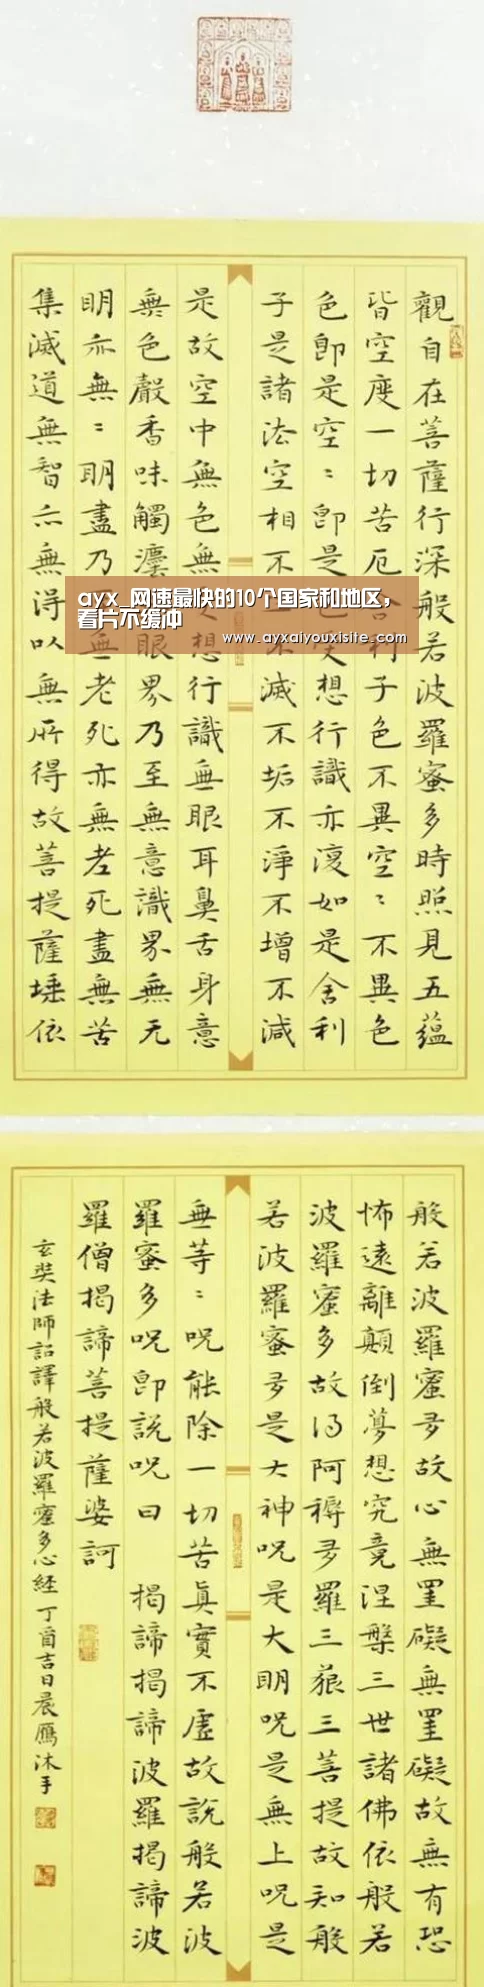 觀自在菩薩行深般若波羅蜜多時照見五蘊
皆空度一切苦厄舍利子色不異空〻不異色
色即是空〻即是色受想行識亦復如是舍利
子是諸法空相不不滅不垢不淨不增不減
是故空中無色無受想行識無眼耳鼻舌身意
無色聲香味觸灋眼界乃至無意識界無无
明亦無〻明盡乃無老死亦無老死盡無苦
集滅道無智亦無得以無所得故菩提薩埵依
ayx 网速最快的10个国家和地区，
看片不缓冲
www.ayxaiyouxisite.com
般若波羅蜜多故心無罣礙無罣礙故無有恐
怖遠離顛倒夢想究竟涅槃三世諸佛依般若
波羅蜜多故得阿耨多羅三藐三菩提故知般
若波羅蜜多是大神咒是大明咒是無上咒是
無等〻咒能除一切苦真實不虛故說般若波
羅蜜多咒即說咒曰 揭諦揭諦波羅揭諦波
羅僧揭諦菩提薩婆訶
玄奘法師詔譯般若波羅蜜多心經 丁酉吉日晨雁沐手